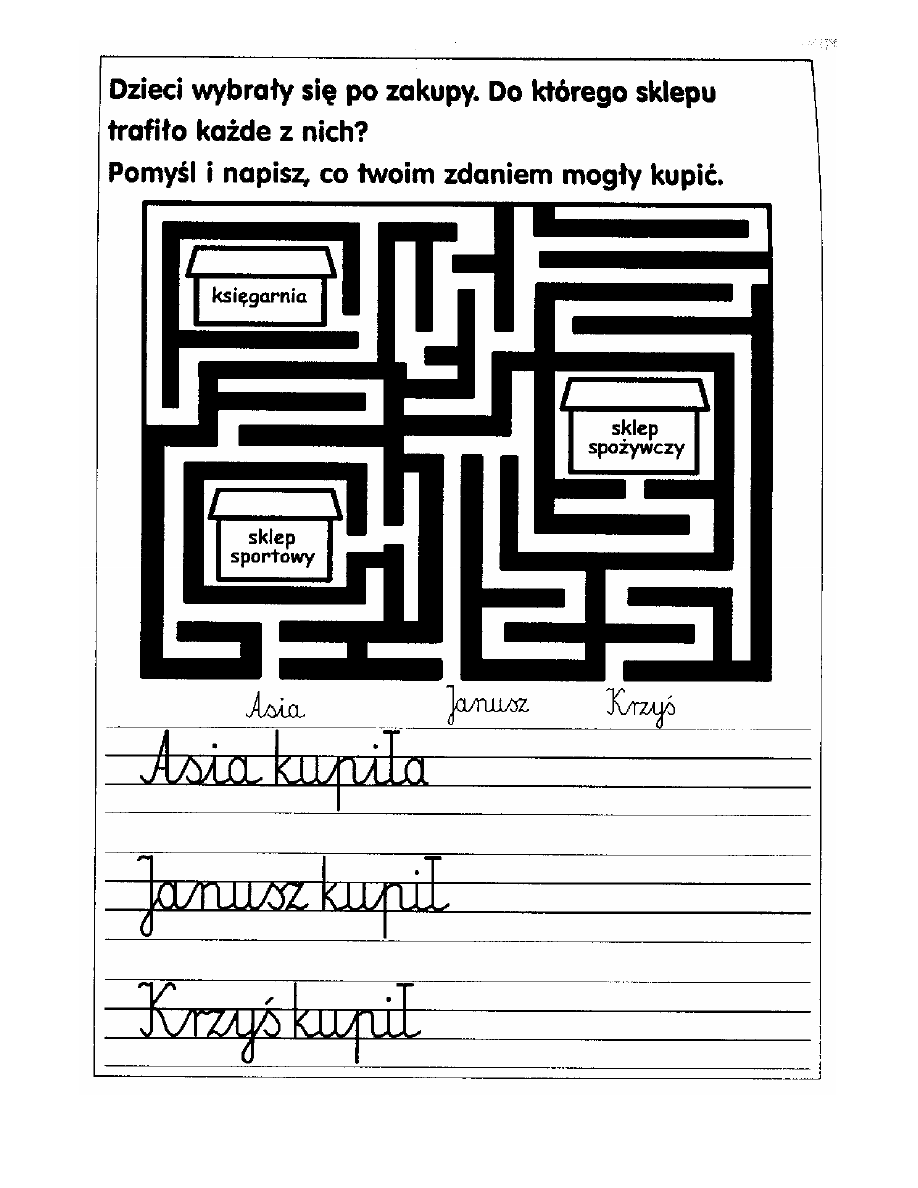 Dzieci wybrały się po zakupy. Do którego sklepu
trafiło każde z nich?
Pomyśl i napisz, co twoim zdaniem mogły kupić.
księgarnia
sklep
spożywczy
sklep
sportowy
Asia Janusz Krzyś
Asia kupiła
Janusz kupił
Krzyś kupił